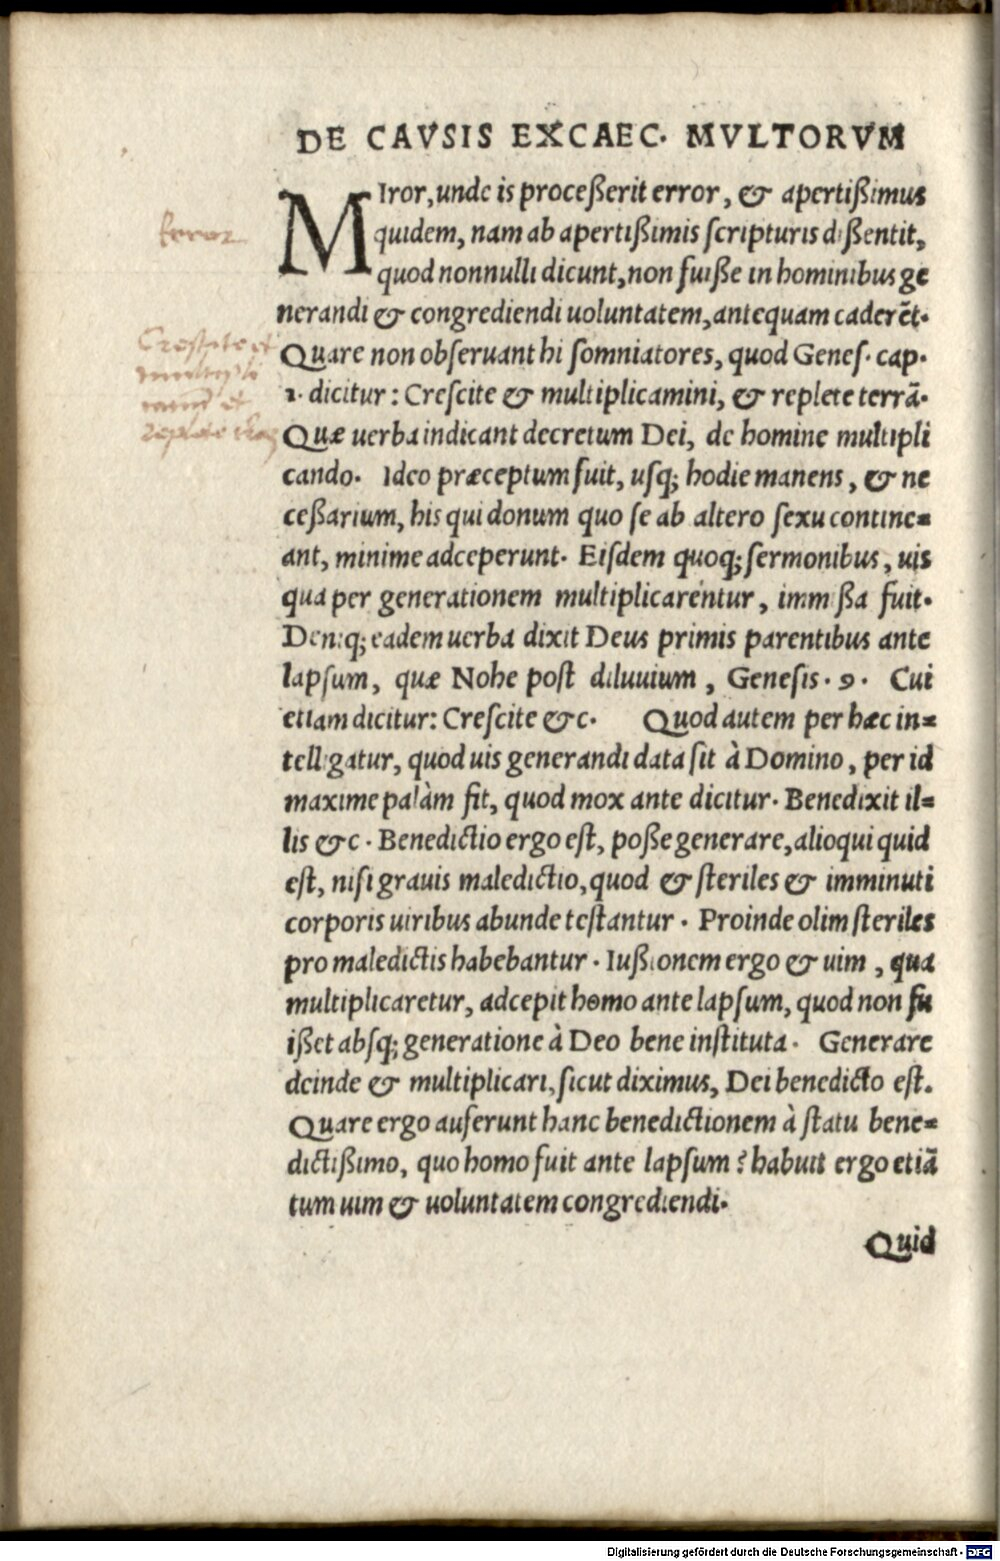 DE CAVSIS EXCAEC. MVLTORVM
MIror, unde is proceßerit error, & apertißimus
quidem, nam ab apertißimis ſcripturis dißentit,
quod nonnulli dicunt, non fuiße in hominibus ge
nerandi & congrediendi uoluntatem, antequam caderēt.
Quare non obſeruant hi ſomniatores, quod Geneſ. cap.
1. dicitur: Creſcite & multiplicamini, & replete terrā.
Quæ uerba indicant decretum Dei, de homine multipli
cando. Ideo præceptum fuit, uſq; hodie manens, & ne
ceßarium, his qui donum quo ſe ab altero ſexu contine=
ant, minime adceperunt. Eiſdem quoq; ſermonibus, uis
qua per generationem multiplicarentur, immißa fuit.
Deniq; eadem uerba dixit Deus primis parentibus ante
lapſum, quæ Nohe poſt diluuium, Geneſis. 9. Cui
etiam dicitur: Creſcite &c. Quod autem per hæc in=
telligatur, quod uis generandi data ſit à Domino, per id
maxime palàm fit, quod mox ante dicitur. Benedixit il=
lis &c. Benedictio ergo eſt, poße generare, alioqui quid
eſt, niſi grauis maledictio, quod & ſteriles & imminuti
corporis uiribus abunde teſtantur. Proinde olim ſteriles
pro maledictis habebantur. Iußionem ergo & uim, qua
multiplicaretur, adcepit homo ante lapſum, quod non fu
ißet abſq; generatione à Deo bene inſtituta. Generare
deinde & multiplicari, ſicut diximus, Dei benedicto eſt.
Quare ergo auferunt hanc benedictionem à ſtatu bene=
dictißimo, quo homo fuit ante lapſum? habuit ergo etiā
tum uim & uoluntatem congrediendi.
Quid
Error
Creſcite et
multipli
replete
Digitalisierung gefördert durch die Deutsche Forschungsgemeinschaft - DFG